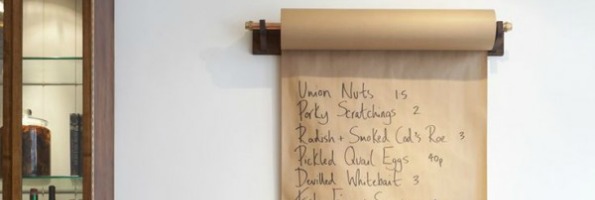 Union Nuts 1.5
Porky Scratchings 2
Radish + Smoked Cod's Roe 3
Pickled Quail Eggs 40p
Devilled Whitebait 3